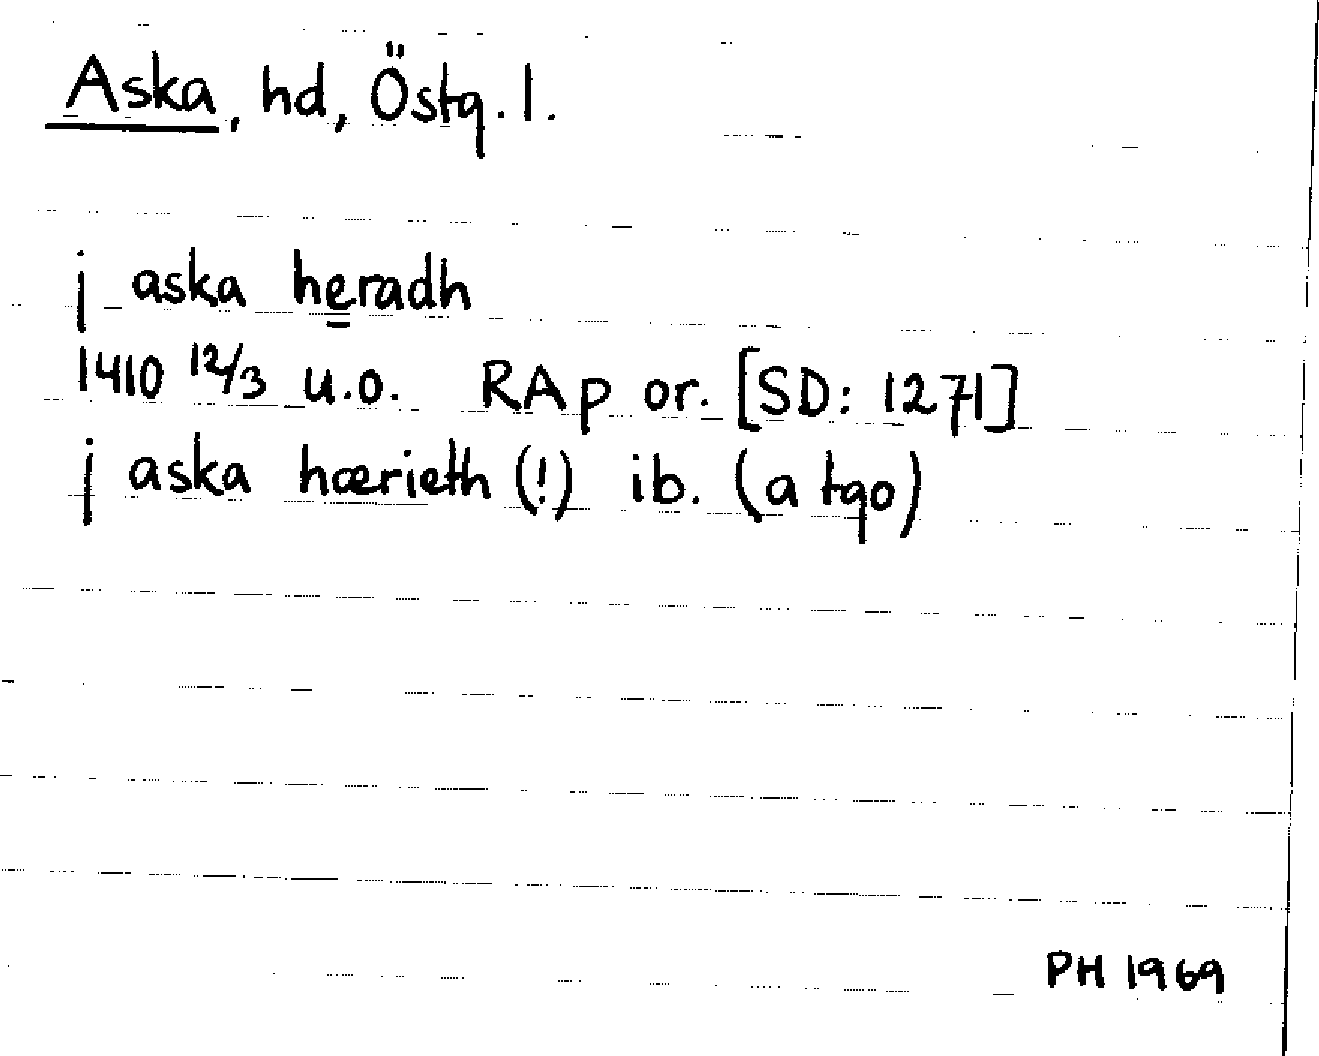 Aska, hd, Östg. l.
j aska heradh
1410 12/3 u.o. RAp or. [SD: 1271]
j aska hærieth (!) ib. (a tgo)
PH 1969